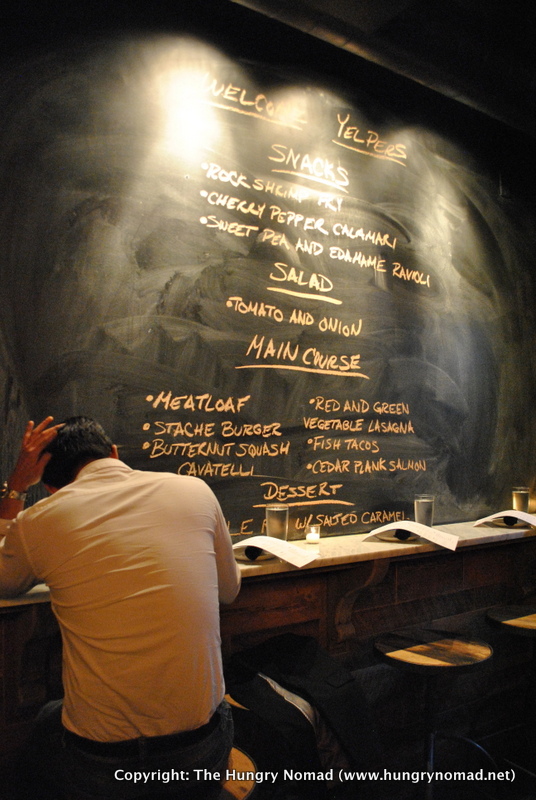 WELCOME YELPERS
SNACKS
•ROCK SHRIMP FRY
•CHERRY PEPPER CALAMARI
•SWEET PEA AND EDAMAME RAVIOLI
SALAD
•TOMATO AND ONION
MAIN COURSE
•MEATLOAF
•STACHE BURGER
•BUTTERNUT SQUASH
CAVATELLI
•RED AND GREEN
VEGETABLE LASAGNA
•FISH TACOS
•CEDAR PLANK SALMON
DESSERT
W/ SALTED CARAMEL
Copyright: The Hungry Nomad (www.hungrynomad.net)